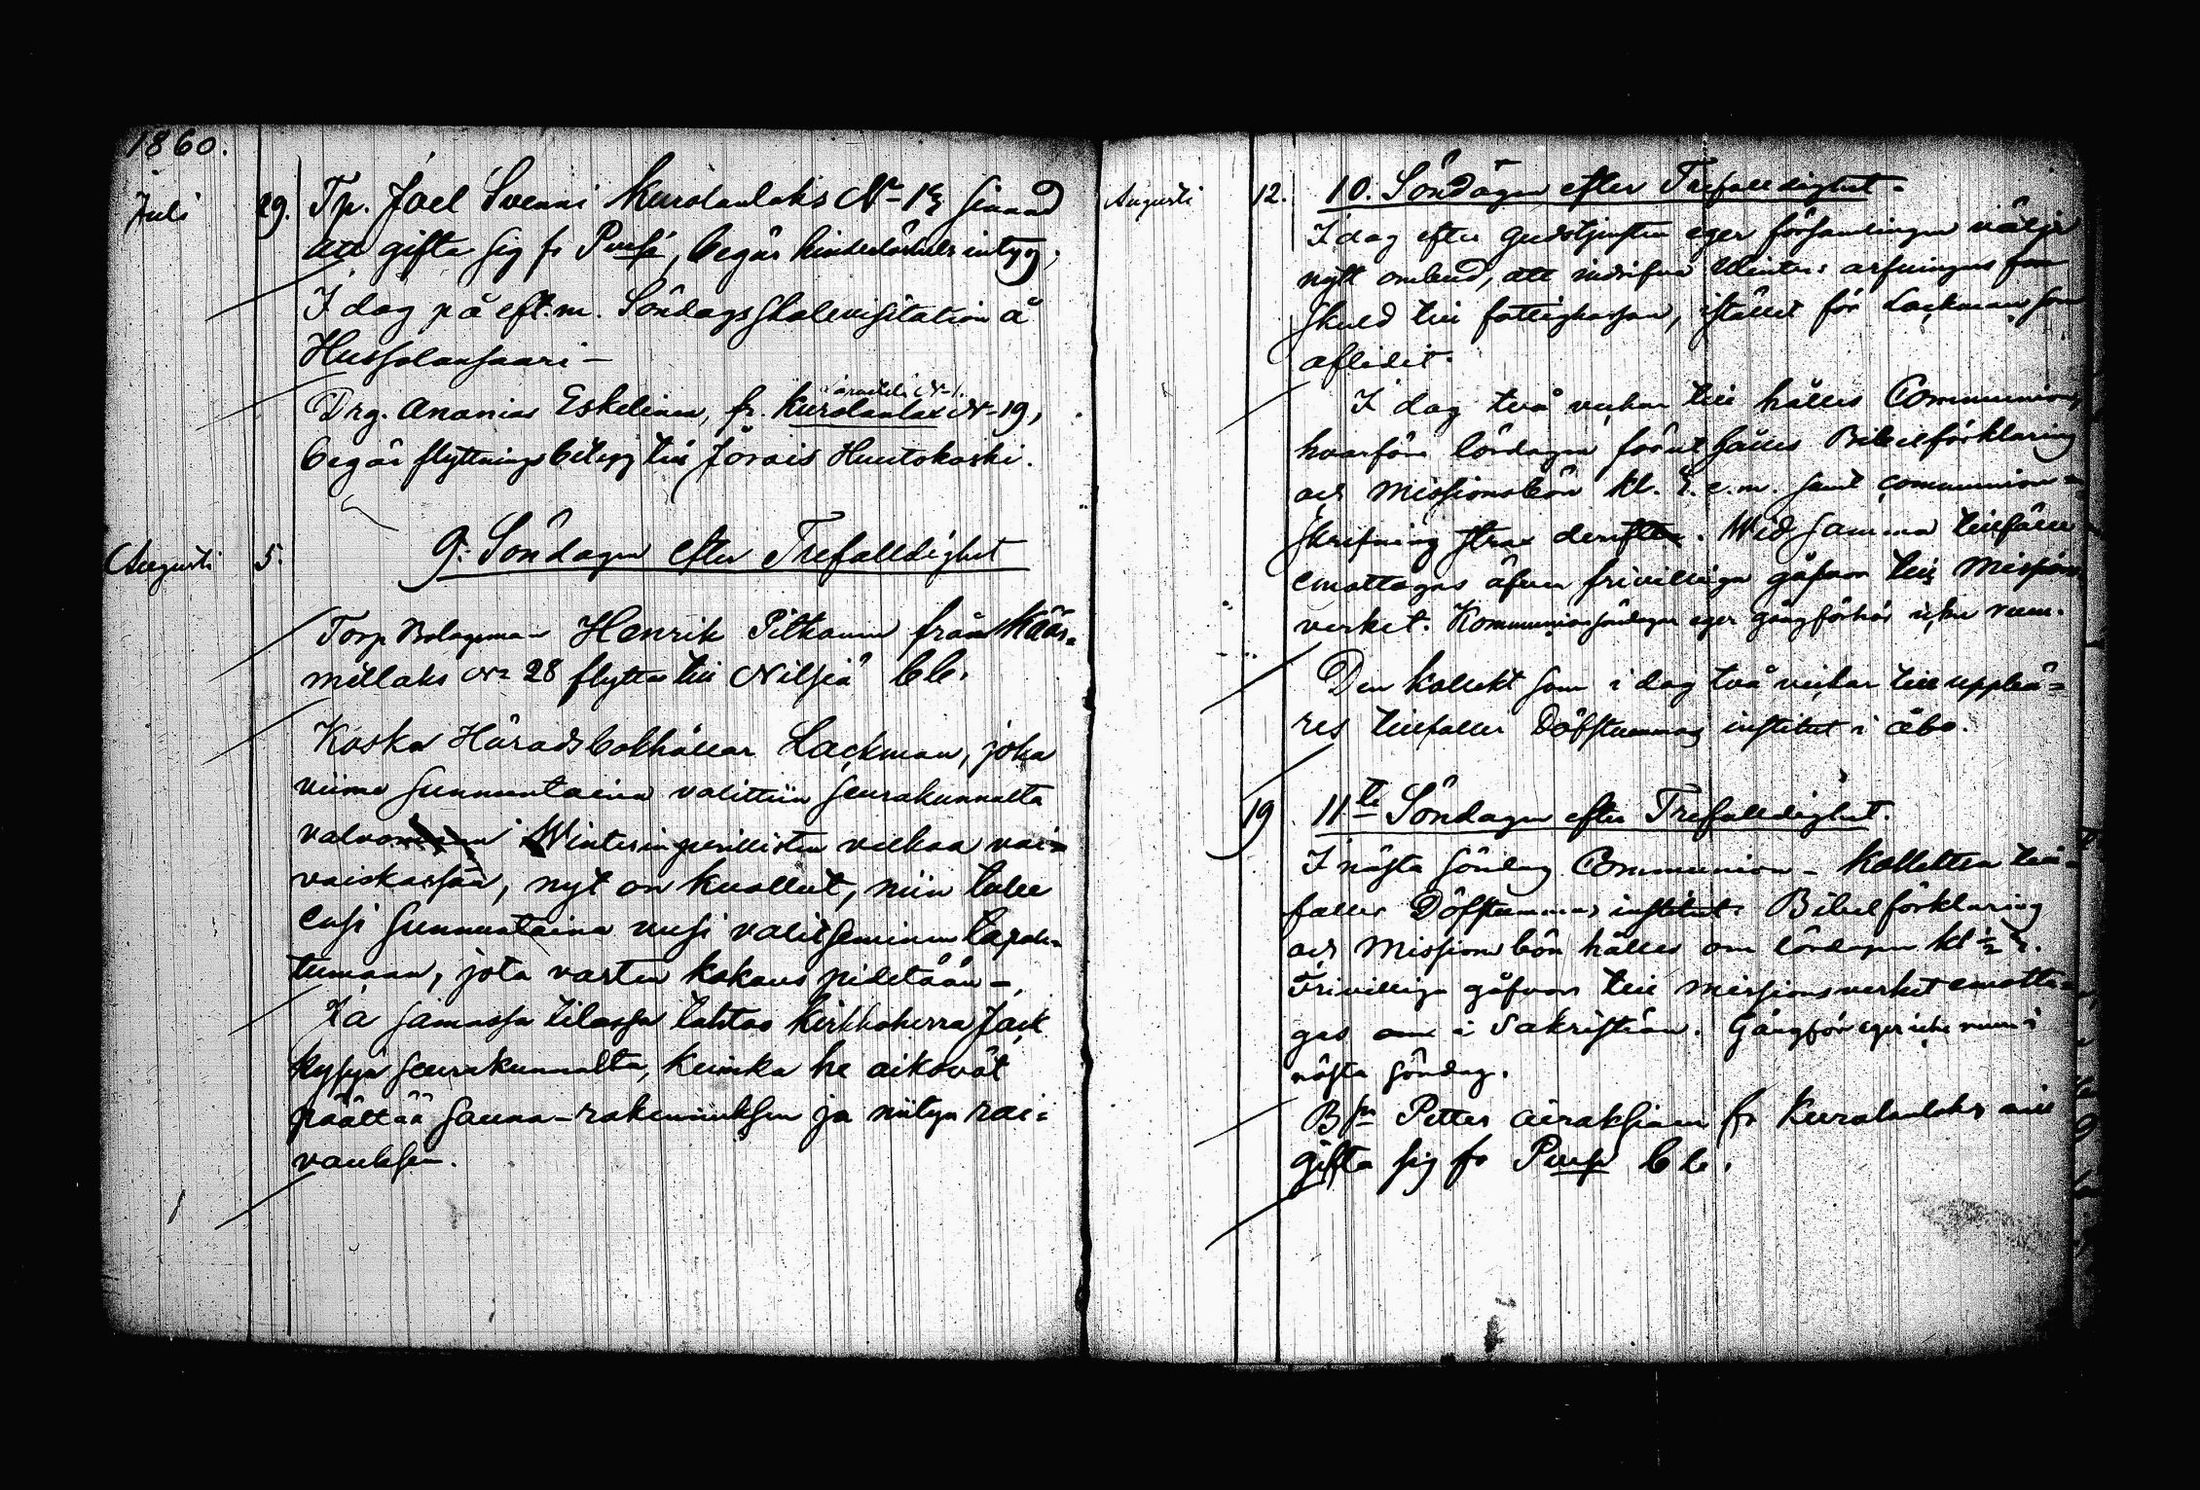 1860.
Juli 29. Tp. Joel Svenni Kurolanlaks N 13 sinnad
att gifta sig fr Pursi, begär hinderlöshets intyg.
I dag på eft.m. Söndagsskolevisitation å
Hussolansaari –
N 1.
Drg. Ananias Eskelinen, fr. Kurolanlax N 19,
begär flyttningsbetyg till Jorois Huutokoski.
Augusti 5. 9: Söndagen efter Trefalldighet
Torp Bolagsman Henrik Pitkänen från Kääs-
mellaks N 28 flyttar till Nilsiä bb.
Koska Häradsbokhållar Lackman, joka
viime sunnuntaina valittiin seurakunnalta
Winterin perillisten velkaa vai-
vaiskassaan, nyt on kuollut, niin tulee
ensi sunnuntaina uusi valitseminen tapah-
tumaan, jota varten kokous pidetään –
Ja samassa tilassa tahtoo Kirkkoherra Jack
kysyä seurakunnalta, kuinka he aikovat
päättää sauna-rakennuksen ja niityn rai-
vauksen.
Augusti 12. 10. Söndagen efter Trefalldighet.
I dag efter gudstjensten eger församlingen välja
nytt ombud, att indrifva Winters arfvingars
skuld till fattigkassan, istället för Lackman som
aflidit.
I dag två veckor till hålles Communion,
hvarföre lördagen förut hålles Bibelförklaring
och Missionsbön kl. 5. e.m. samt communion-
skrifning strax derefter. Wid samma tillfälle
emottagas äfven frivilliga gåfvor till Missions
verket. Kommunionsöndagen eger gångförhör icke rum.
Den kollekt som i dag två veckor till uppbä-
res tillfaller Döfstummas institut i Åbo.
19 11te Söndagen efter Trefalldighet.
I nästa söndag Communion – Kollekten till-
faller Döfstummas institut. Bibelförklaring
och Missionsbön hålles om lördagen kl ½ 5.
Frivilliga gåfvor till missionsverket emotta-
gas i Sakristian. Gångför eger icke rum i
nästa söndag.
Bfr Petter Airaksinen fr Kurolanlaks vill
gifta sig fr Pursi bb.